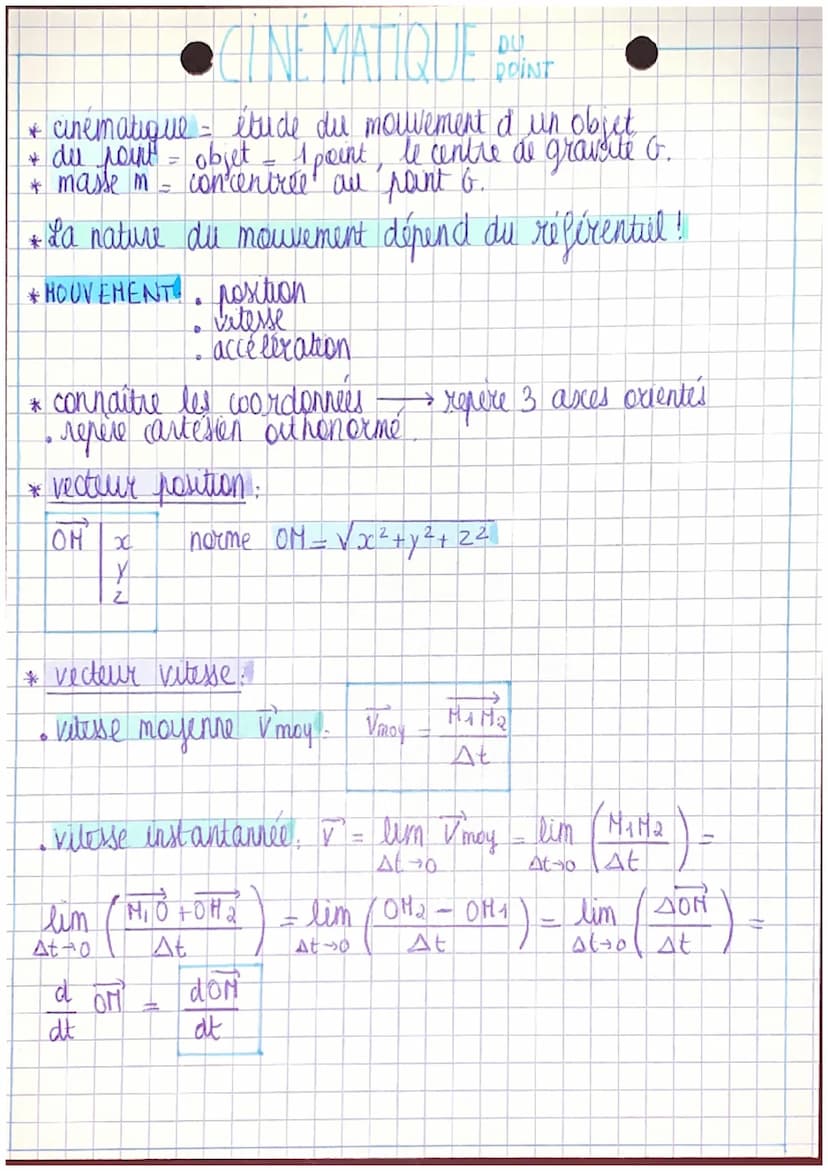 CINÉMATIQUE DU POINT
* cinématique = étude du mouvement d'un objet
* du point = objet = 1 point, le centre de gravité G.
* masse m = concentrée au point G.
* La nature du mouvement dépend du référentiel !
* MOUVEMENT: . position
. vitesse
. accélération
* connaître les coordonnées → repère 3 axes orientés
. repère cartésien orthonormé.
* vecteur position:
OM→ | x norme OM = √x²+y²+z²
y
z
* vecteur vitesse:
. vitesse moyenne V→moy: V→moy = M1M2→ / Δt
. vitesse instantannée: V→ = lim Δt→0 V→moy = lim Δt→0 (M1M2 / Δt) =
lim Δt→0 (M1O→ + OM2→ / Δt) = lim Δt→0 (OM2 − OM1 / Δt) = lim Δt→0 (ΔOM→ / Δt) =
d/dt OM→ = dOM→/dt